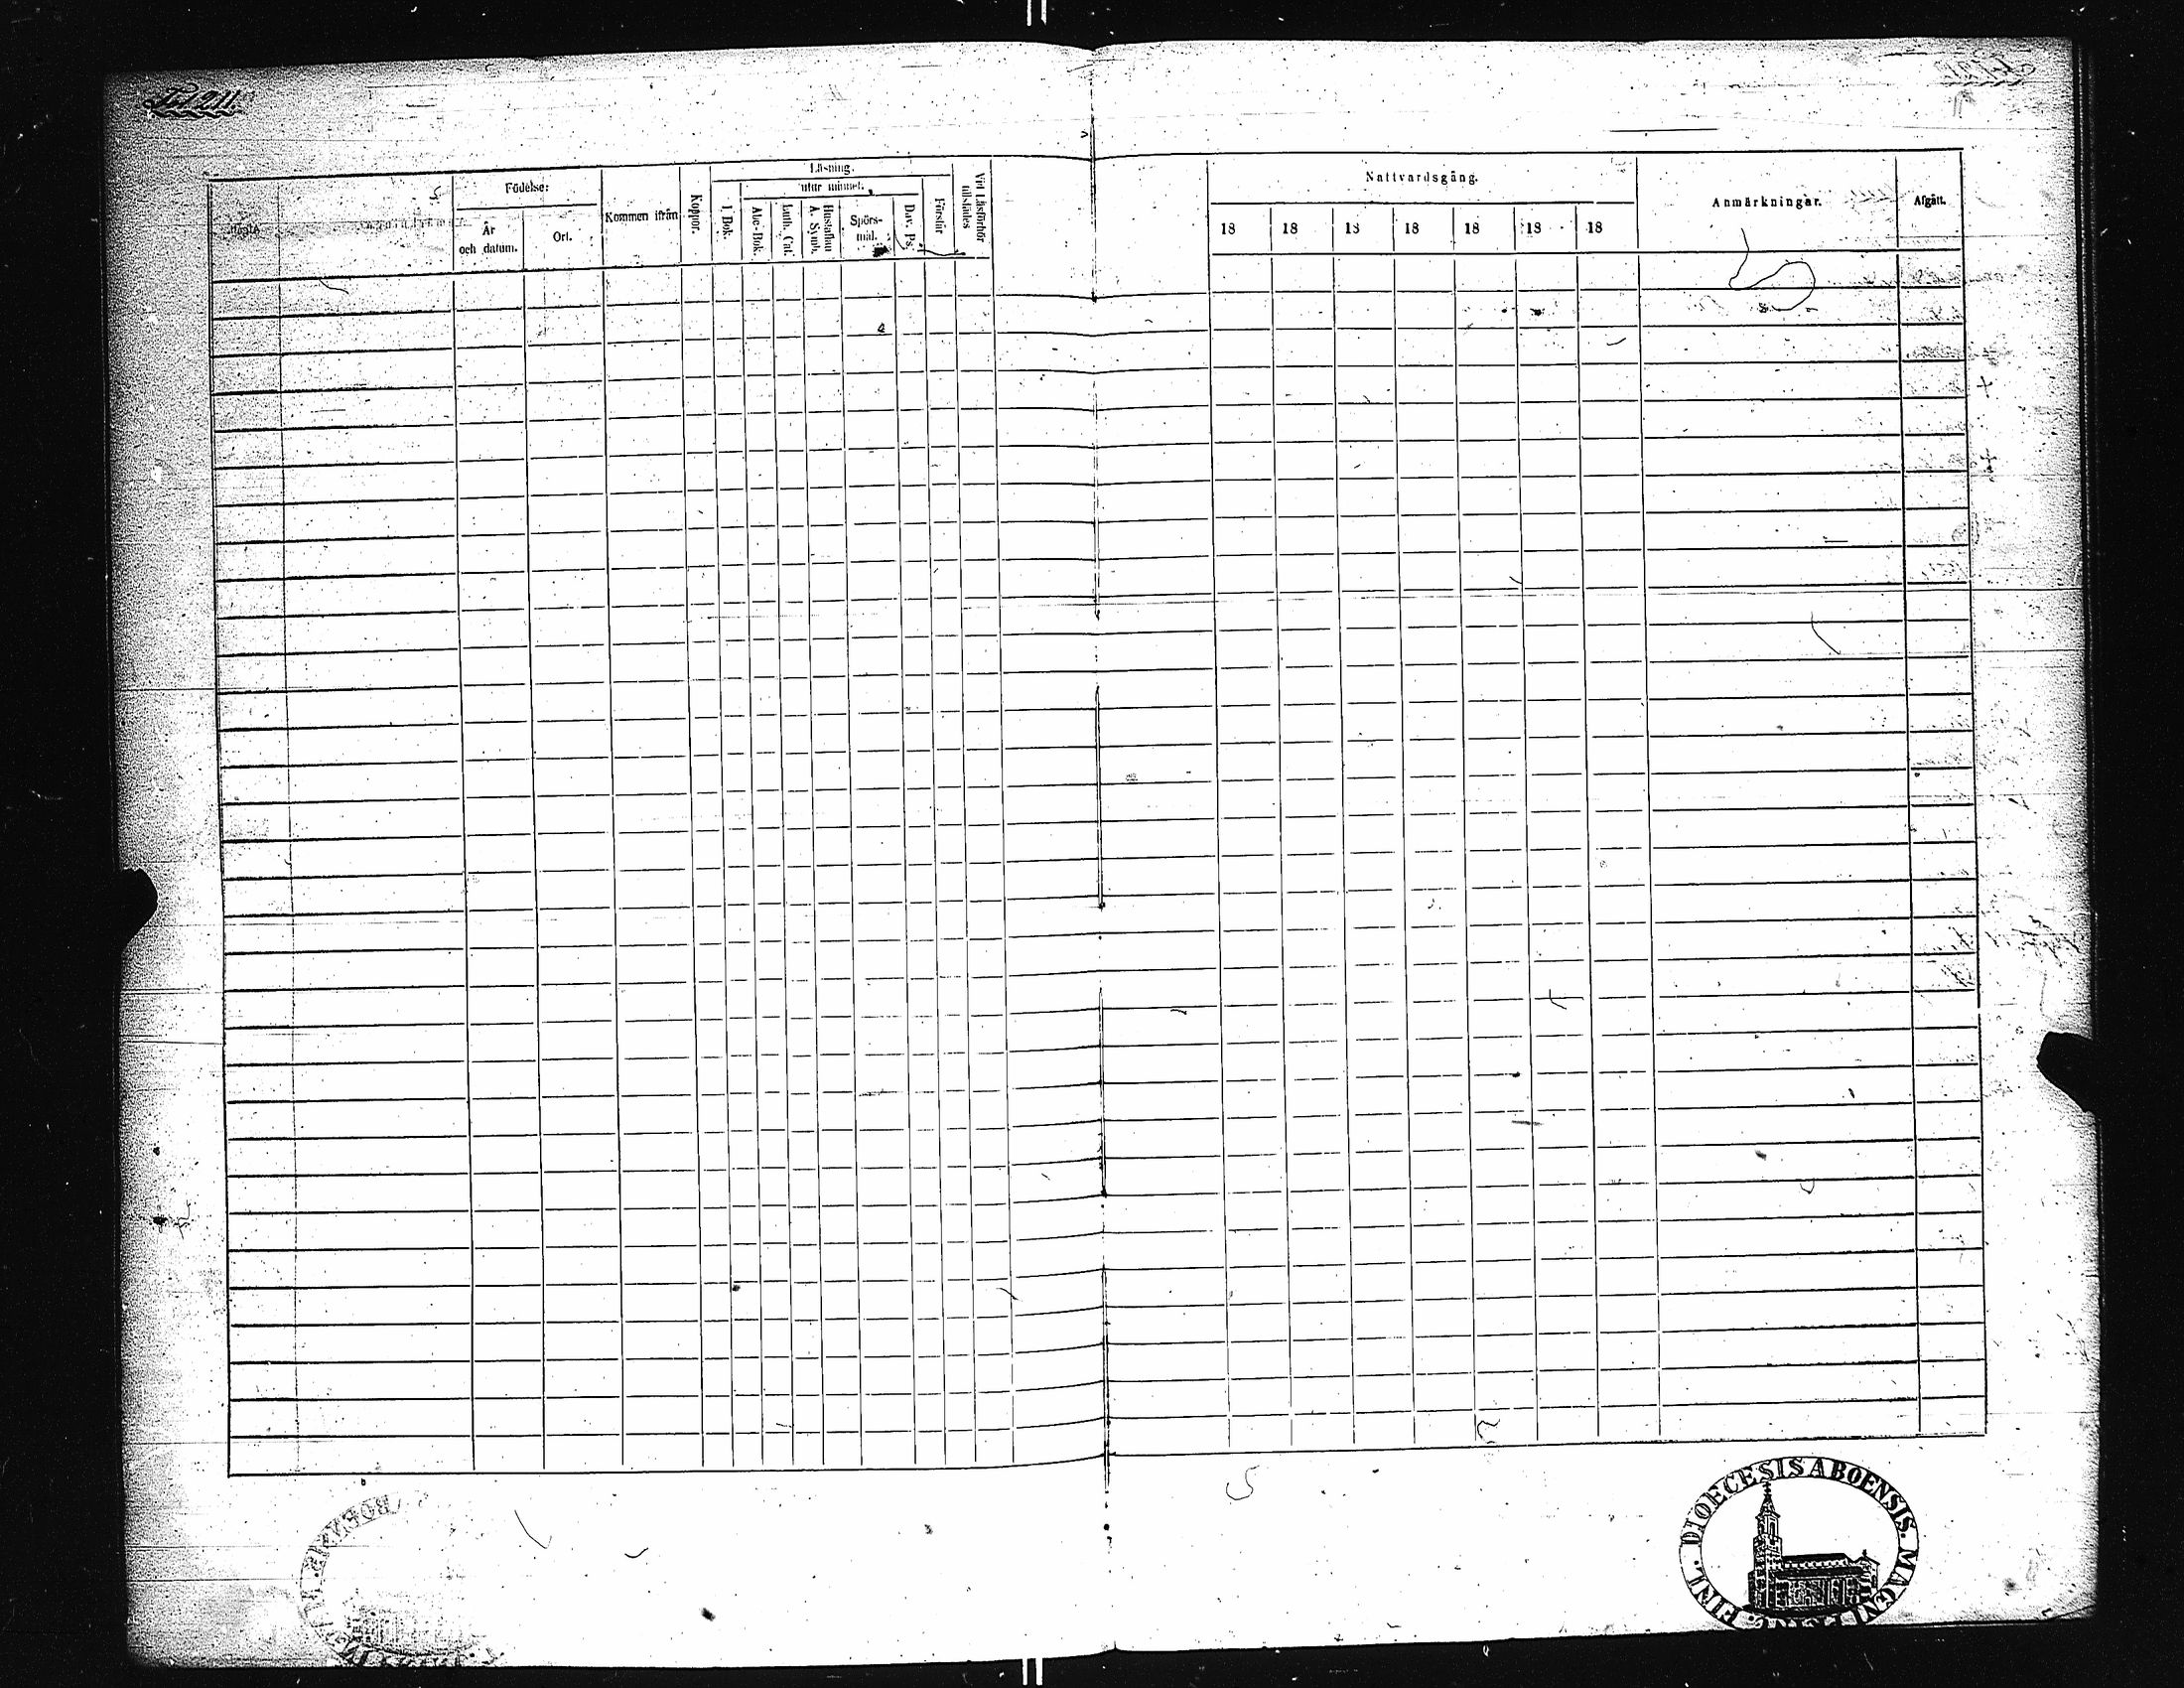 Fol 211.
Födelse:
År
och datum.
Ort.
Kommen ifrån
Koppor.
Läsning.
I Bok.
utur minnet.
Abc-Bok.
Luth. Cat.
Hustaflan
A. Symb.
Spörs-
mål.
Dav. Ps.
Förstår
Vid Läsförhör
tillstädes
Nattvardsgång.
18 18 18 18 18 18 18
Anmärkningar.
Afgått.
DIOECESIS ABOENSIS. MAGNI FINL.